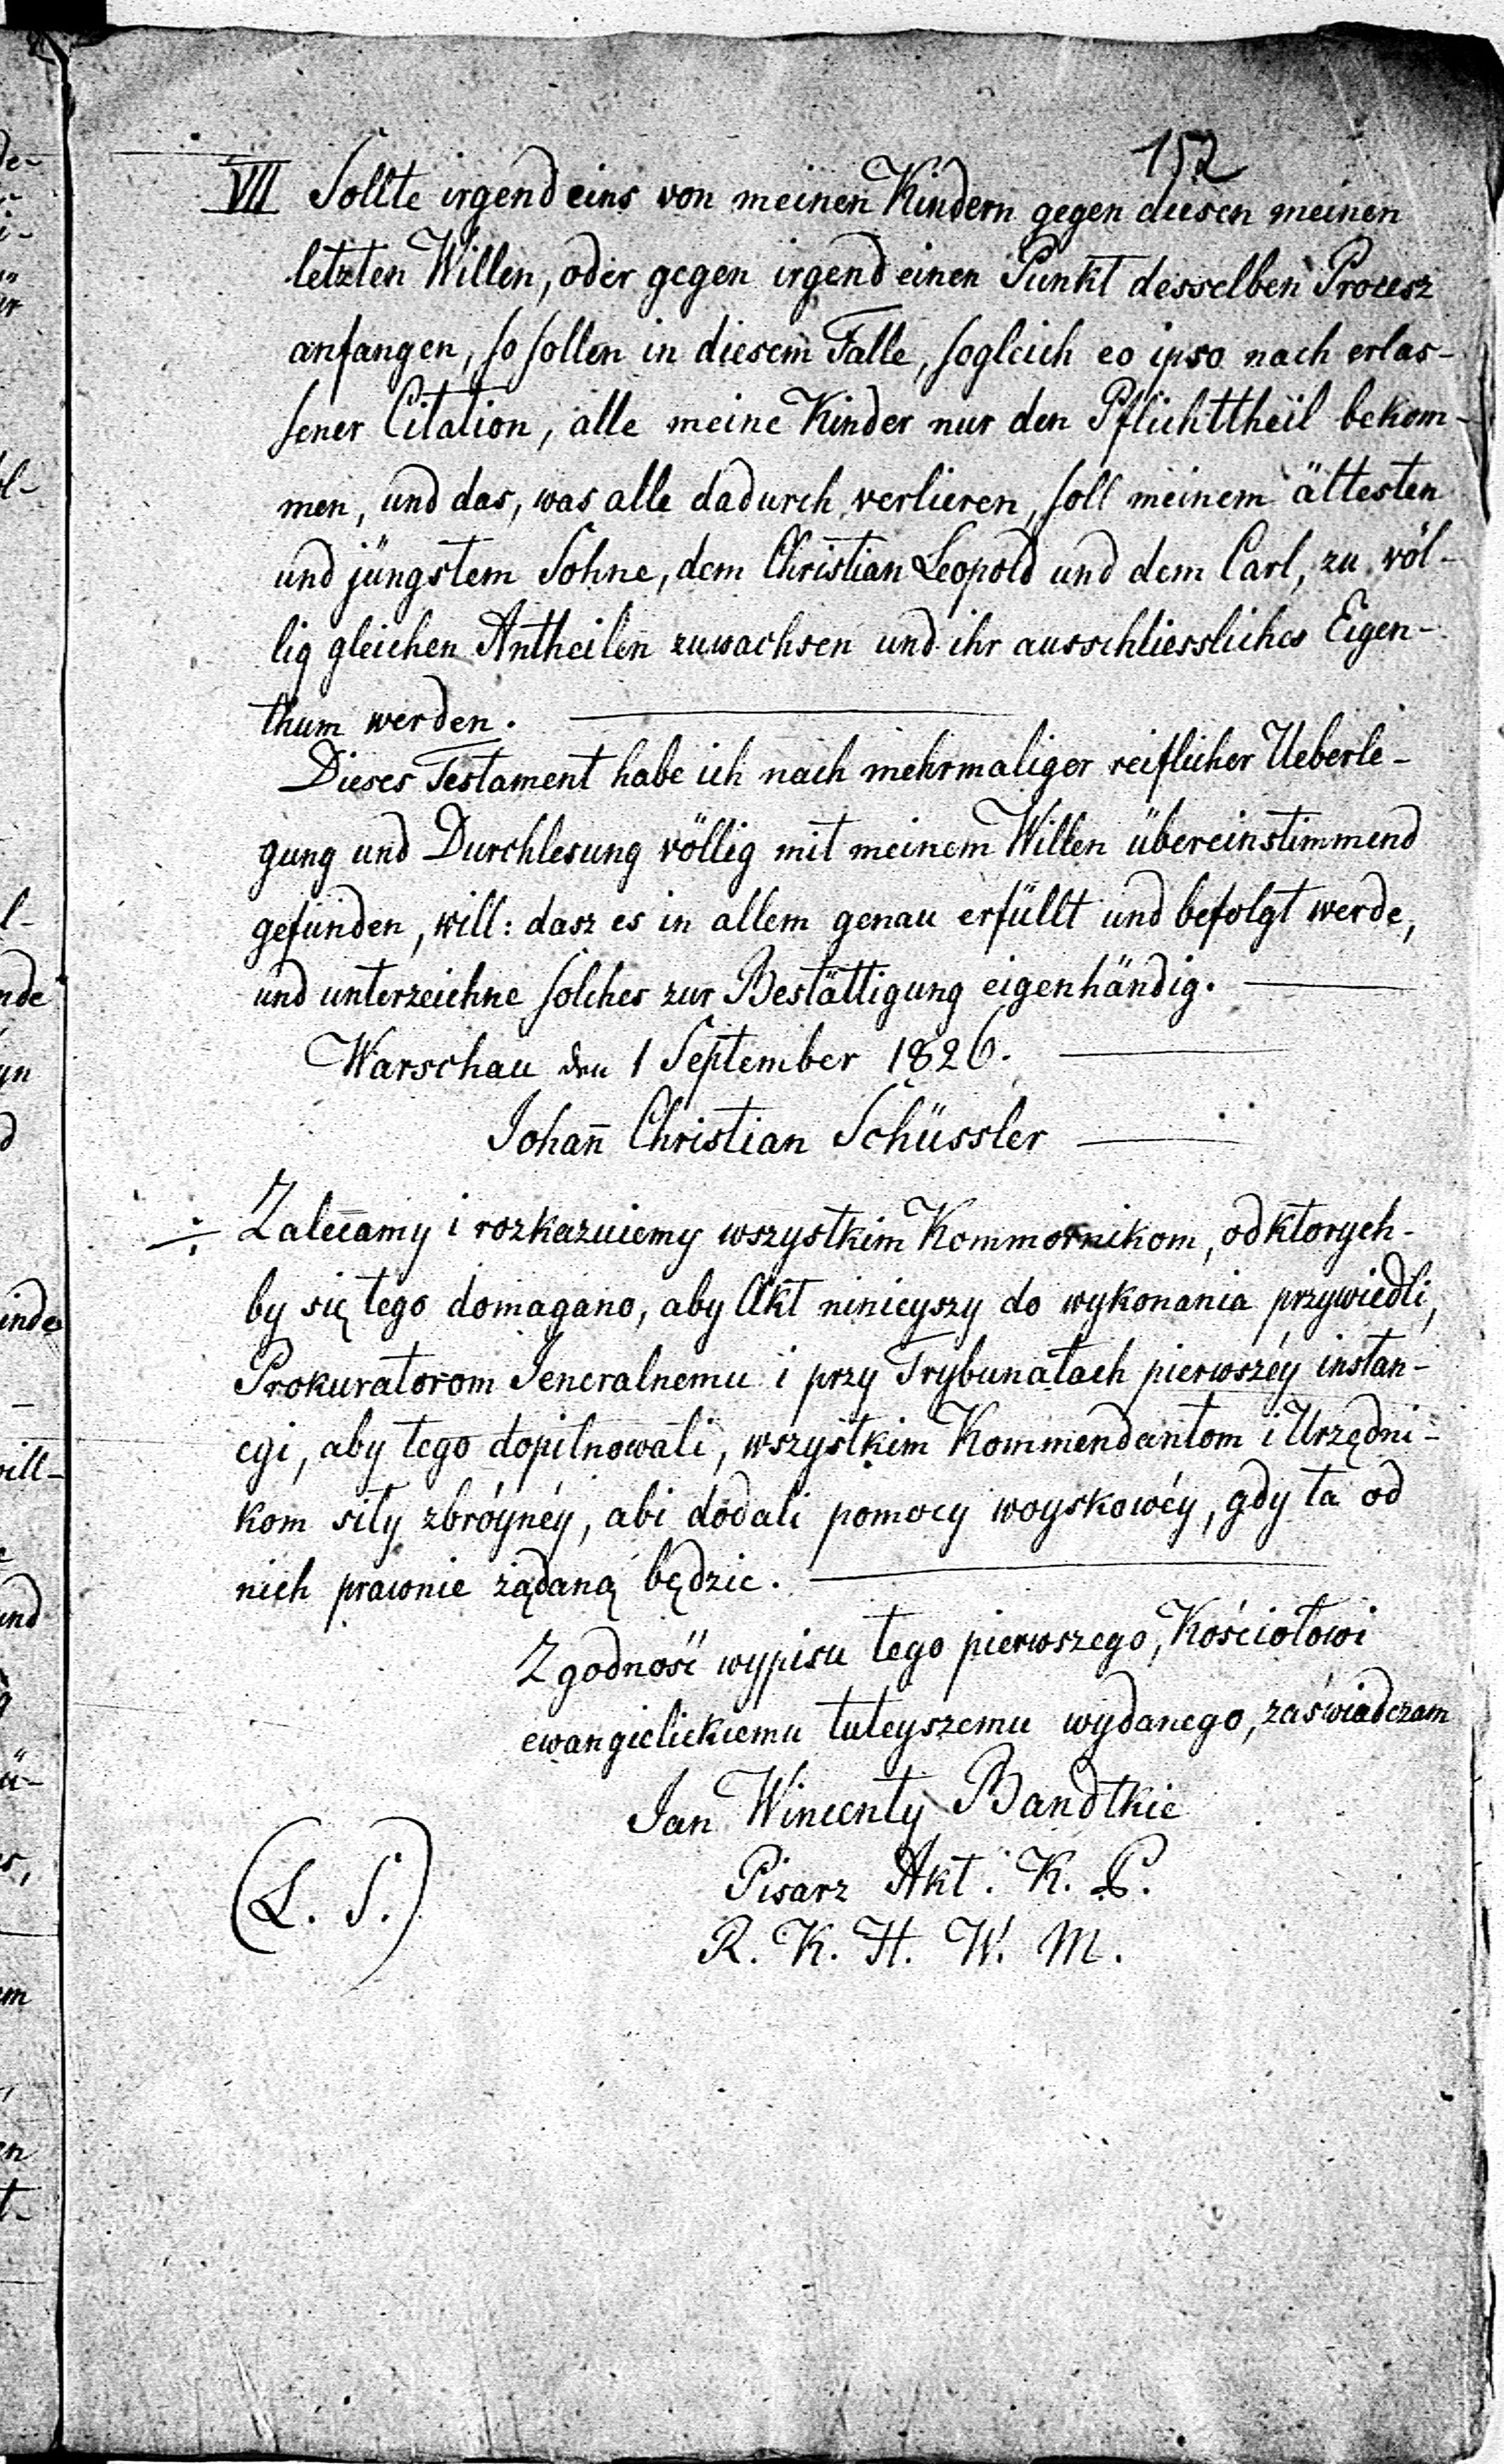 152
VII Sollte irgend eins von meinen Kindern gegen diesen meinen
letzten Willen, oder gegen irgend einen Punkt desselben Procesz
anfangen, so sollen in diesem Falle, sogleich eo ipso nach erlas-
sener Citation, alle meine Kinder nur den Pflichttheil bekom-
men, und das, was alle dadurch verlieren, soll meinem ältesten
und jüngstem Sohne, dem Christian Leopold und dem Carl, zu völ-
lig gleichen Antheilen zuwachsen und ihr ausschliessliches Eigen-
thum werden.
Dieses Testament habe ich nach mehrmaliger reiflicher Ueberle-
gung und Durchlesung völlig mit meinem Willen übereinstimmend
gefunden, will: dasz es in allem genau erfüllt und befolgt werde,
und unterzeichne solches zur Bestättigung eigenhändig.
Warschau den 1 September 1826.
Johan̄ Christian Schüssler
Zalecamy i rozkazuiemy wszystkim Kommornikom, od ktorych-
by się tego domagano, aby Akt ninieyszy do wykonania przywiedli,
Prokuratorom Jeneralnemu i przy Trybunałach pierwszéy instan-
cyi, aby tego dopilnowali, wszystkim Kommendantom i Urzędni-
kom siły zbróynéy, abi dodali pomocy woyskowéy, gdy ta od
nich prawnie żądaną będzie.
Zgodność wypisu tego pierwszego, Kościołowi
ewangielickiemu tuteyszemu wydanego, zaświadczam
Jan Wincenty Bandtkie
Pisarz Akt. K. P.
R. K. H. W. M.
(L. S.)